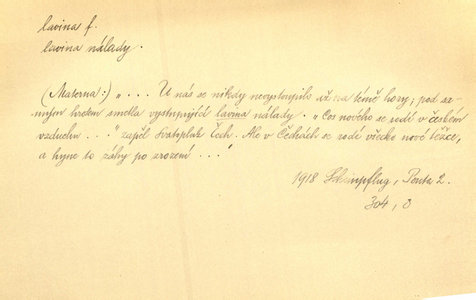 lavina f.
lavina nálady.
(Materna:) "... U nás se nikdy nevystoupilo až na témě hory; pod sa-
mým hradem smetla vystupující lavina nálady. "Cos nového se rodí v českém
vzduchu ..." zapěl Svatopluk Čech. Ale v Čechách se rodí všecko nové těžce,
a hyne to záhy po zrození ..."
1918 Schimpflug, Pouta 2.
304, 0